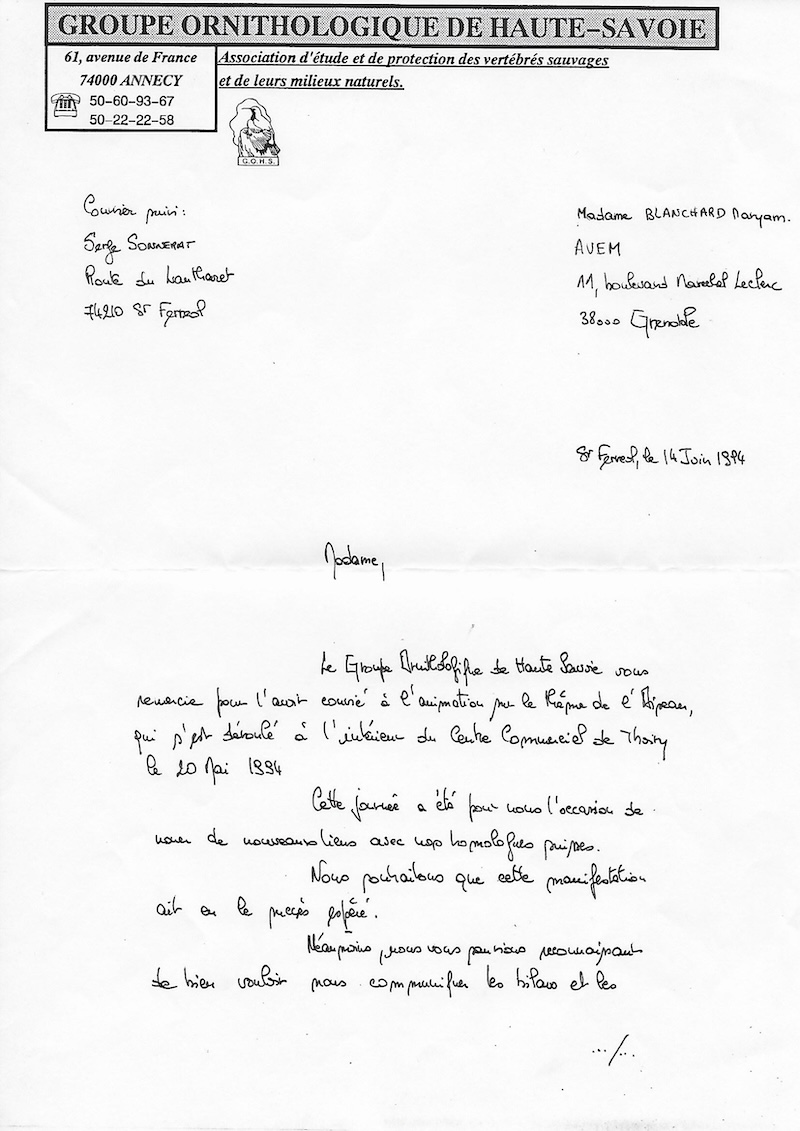 GROUPE ORNITHOLOGIQUE DE HAUTE-SAVOIE
61, avenue de France
74000 ANNECY
50-60-93-67
50-22-22-58
Association d'étude et de protection des vertébrés sauvages
et de leurs milieux naturels.
G.O.H.S.
Courrier suivi:
Serge SONNERAT
Route du
74210 St Ferreol
Madame BLANCHARD Maryam.
AVEM
11, boulevard Marechal Leclerc
38000 Grenoble
St Ferreol, le 14 Juin 1994
Madame,
Le Groupe Ornithologique de Haute Savoie vous
remercie pour l'avoir convié à l'animation sur le thème de l'Oiseau,
qui s'est déroulé à l'intérieur du Centre Commercial de Thoiry
le 20 Mai 1994
Cette journée a été pour nous l'occasion de
nouer de nouveaux liens avec nos homologues suisses.
Nous souhaitons que cette manifestation
ait eu le succès espéré.
Néanmoins, nous vous serions reconnaissant
de bien vouloir nous communiquer les bilans et les
.../...